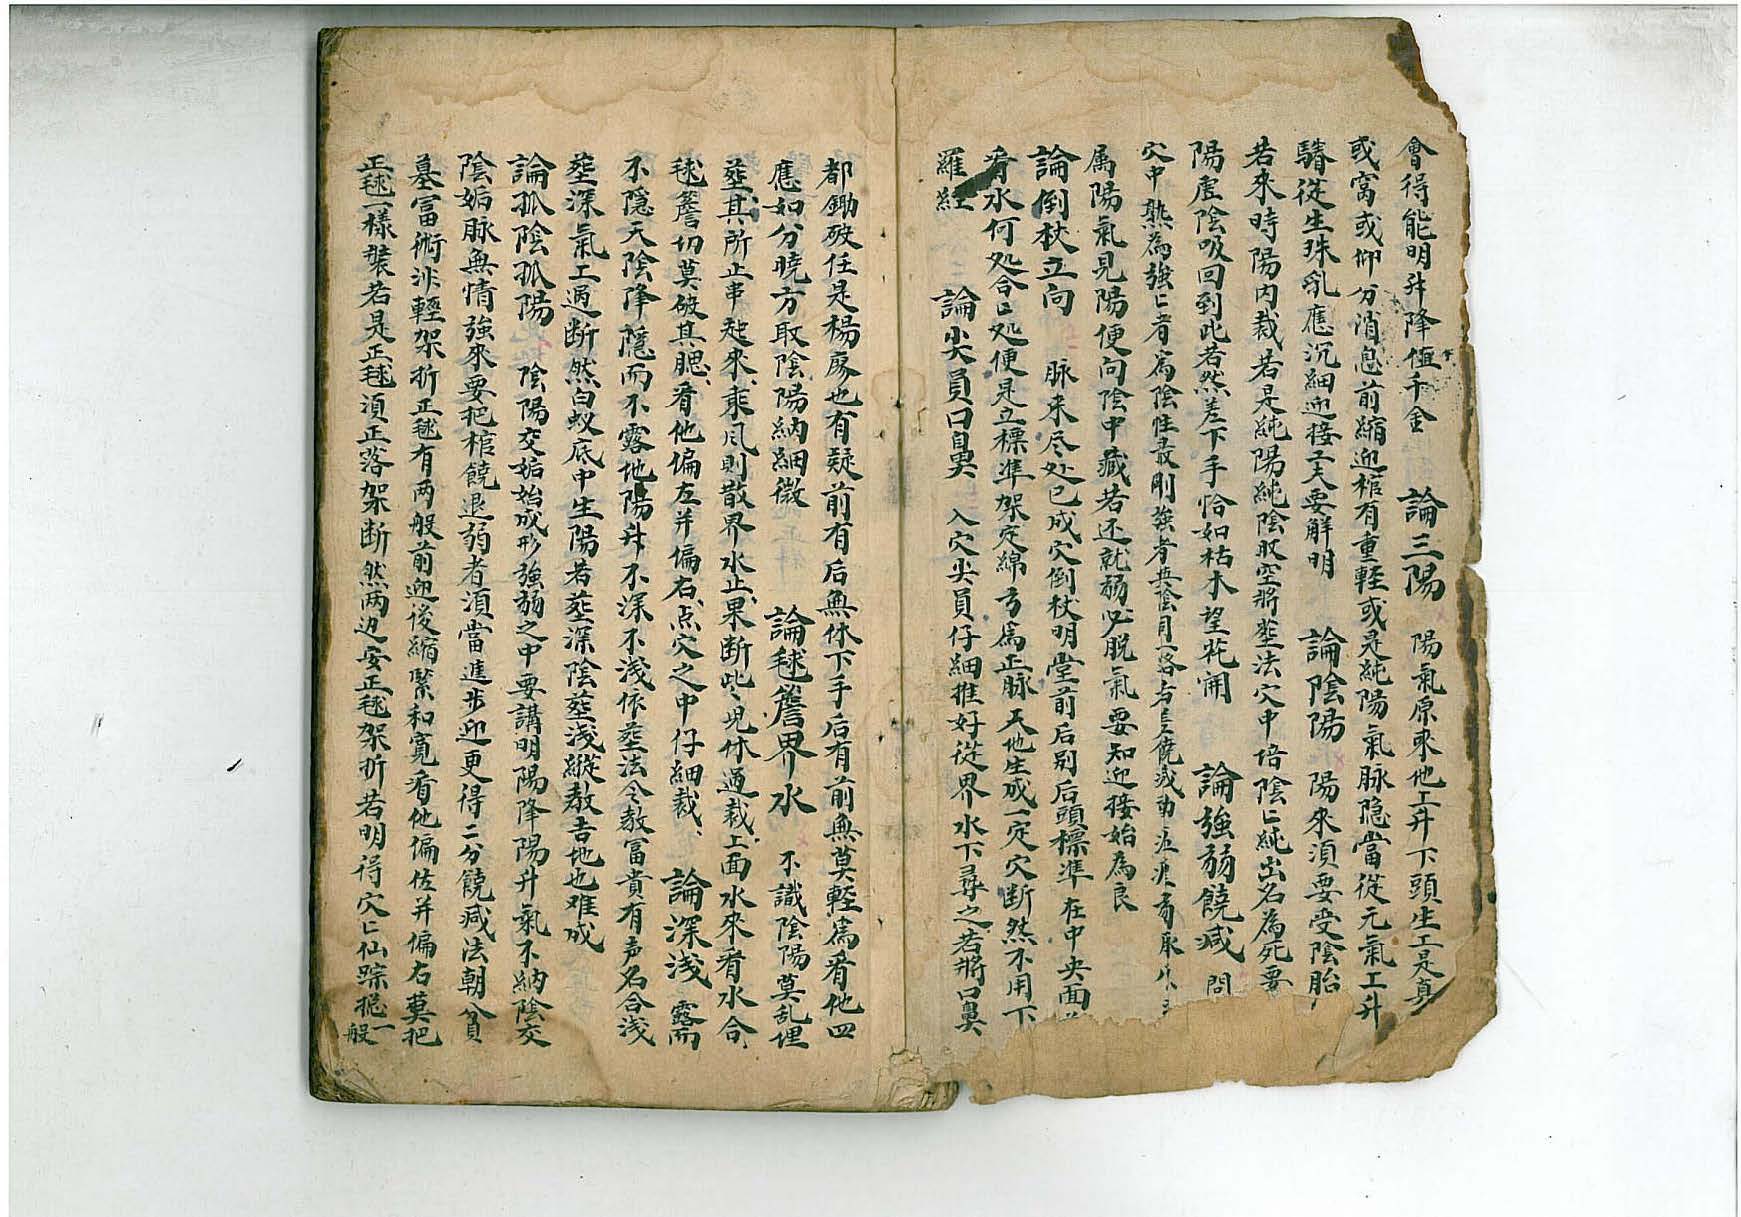 會得能明升降值千金　論三陽　陽氣原來他工升下頭生工是真
或窩或仰分消息前縮迎棺有重軽或是純陽氣脉隐當從元氣工升
騎從生珠乳應沉細迎接工夫要觧明　論陰陽　陽來湏要受陰胎
若來時陽内裁若是純陽純陰収空將塟法穴中培陰匕純出名為死要
陽虚陰吸回到此若然差下手恰如枯木望花開　論強弱饒减　問
穴中熟為強匕者為陰性最剛強者與陰同一路
属陽氣見陽便向陰中藏若还就弱必脱氣要知迎接始為良
論倒杖立向　脉来尽处已成穴倒杖明堂前后别后頭標準在中央面
看水何処合匕処便是立標準架定綿方為正脉天地生成一定穴断然不用下
羅經　論尖員口鼻　入穴尖員仔細推好從界水下尋之若將口鼻
都鋤破任是楊廖也有疑前有后無休下手后有前無莫軽為看他四
應如分曉方取陰陽納細微　論毬簷界水　不識陰陽莫乱埋
塟其所止串起來乘風則散界水止果断些兒休過裁上面水來看水合
毬簷切莫破其腮看他偏左并偏右点穴之中仔細裁　論深浅　露而
不隠天陰降隠而不露地陽升不深不浅作塟法令教富貴有声名合浅
塟深氣工過断然白蚁底中生陽若塟深陰塟浅縱教吉地也难成
論孤陰孤陽　陰陽交姤始成形強弱之中要講明陽降陽升氣不納陰交
陰姤脉無情強來要把棺饒退弱者湏當進步迎更得二分饒减法朝貧
墓富術非輕架折正毬有两般前迎後縮緊和寛看他偏佐并偏右莫把
正毬一樣装若是正毬湏正落架断然两边安正毬架折若明得穴匕仙踪挹一般